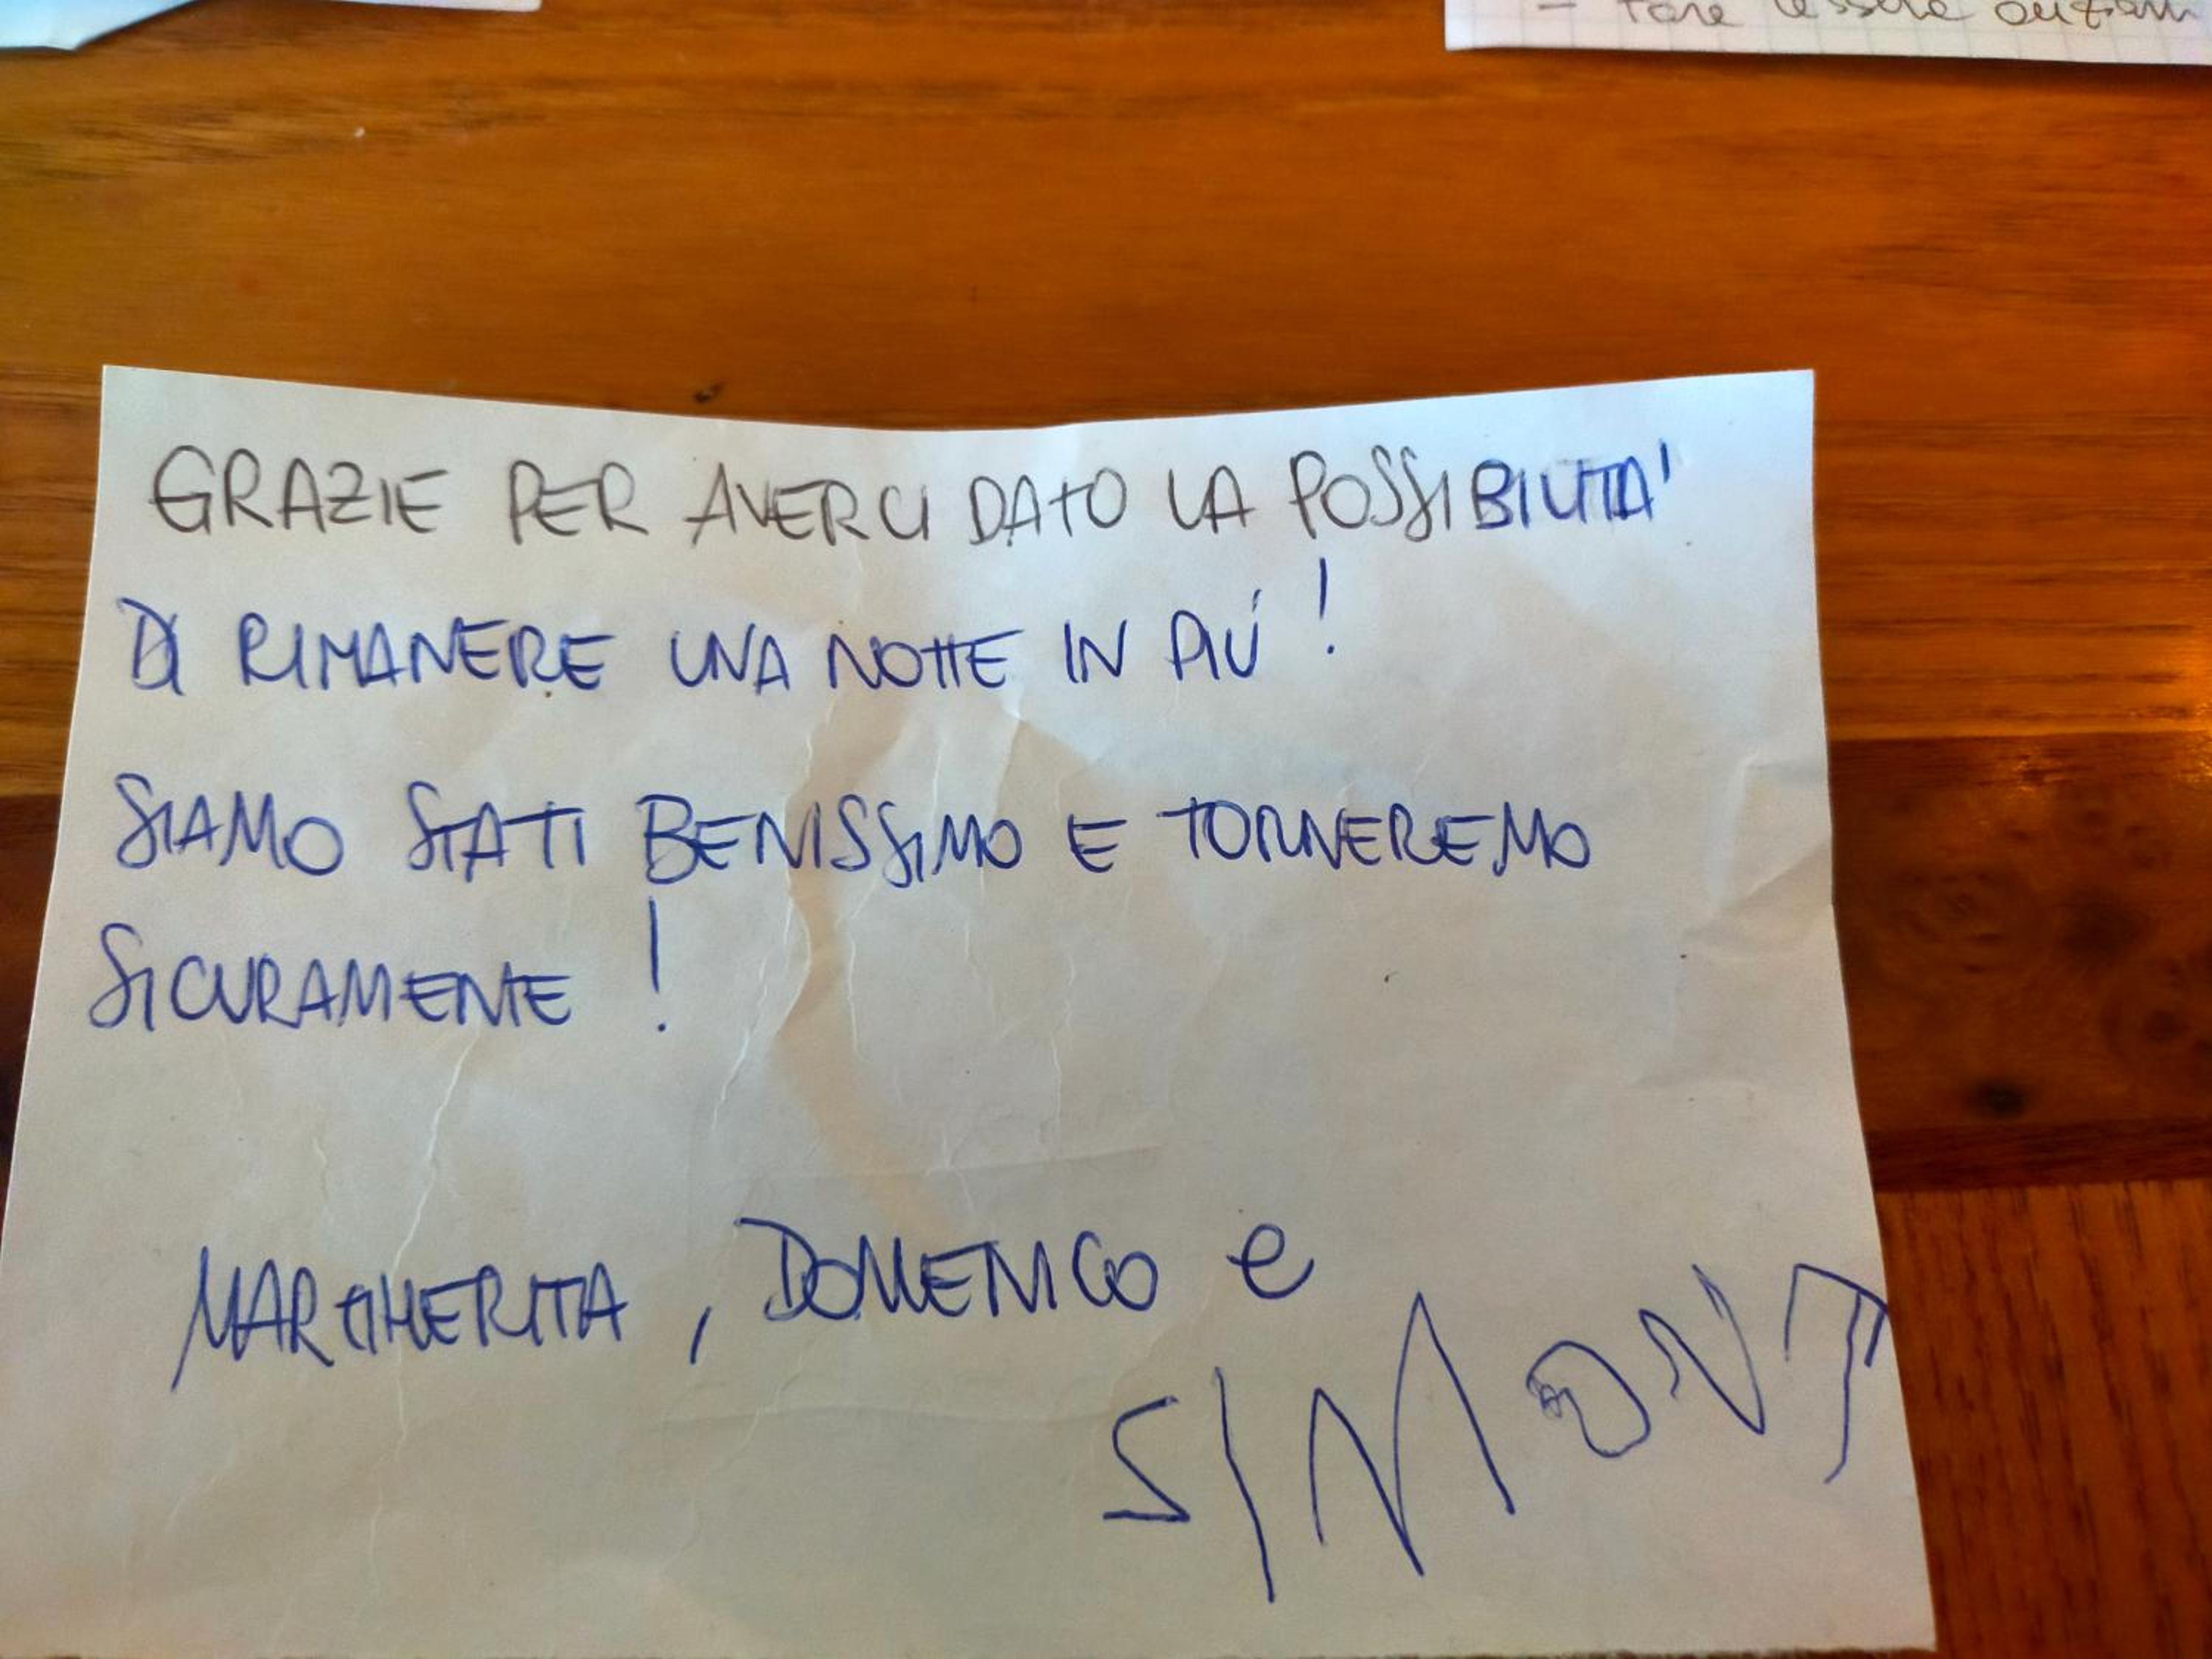 - fare tessere
GRAZIE PER AVERCI DATO LA POSSIBILITA'
DI RIMANERE UNA NOTTE IN PIÚ !
SIAMO STATI BENISSIMO E TORNEREMO
SICURAMENTE !
MARGHERITA, DOMENICO e
SIMON